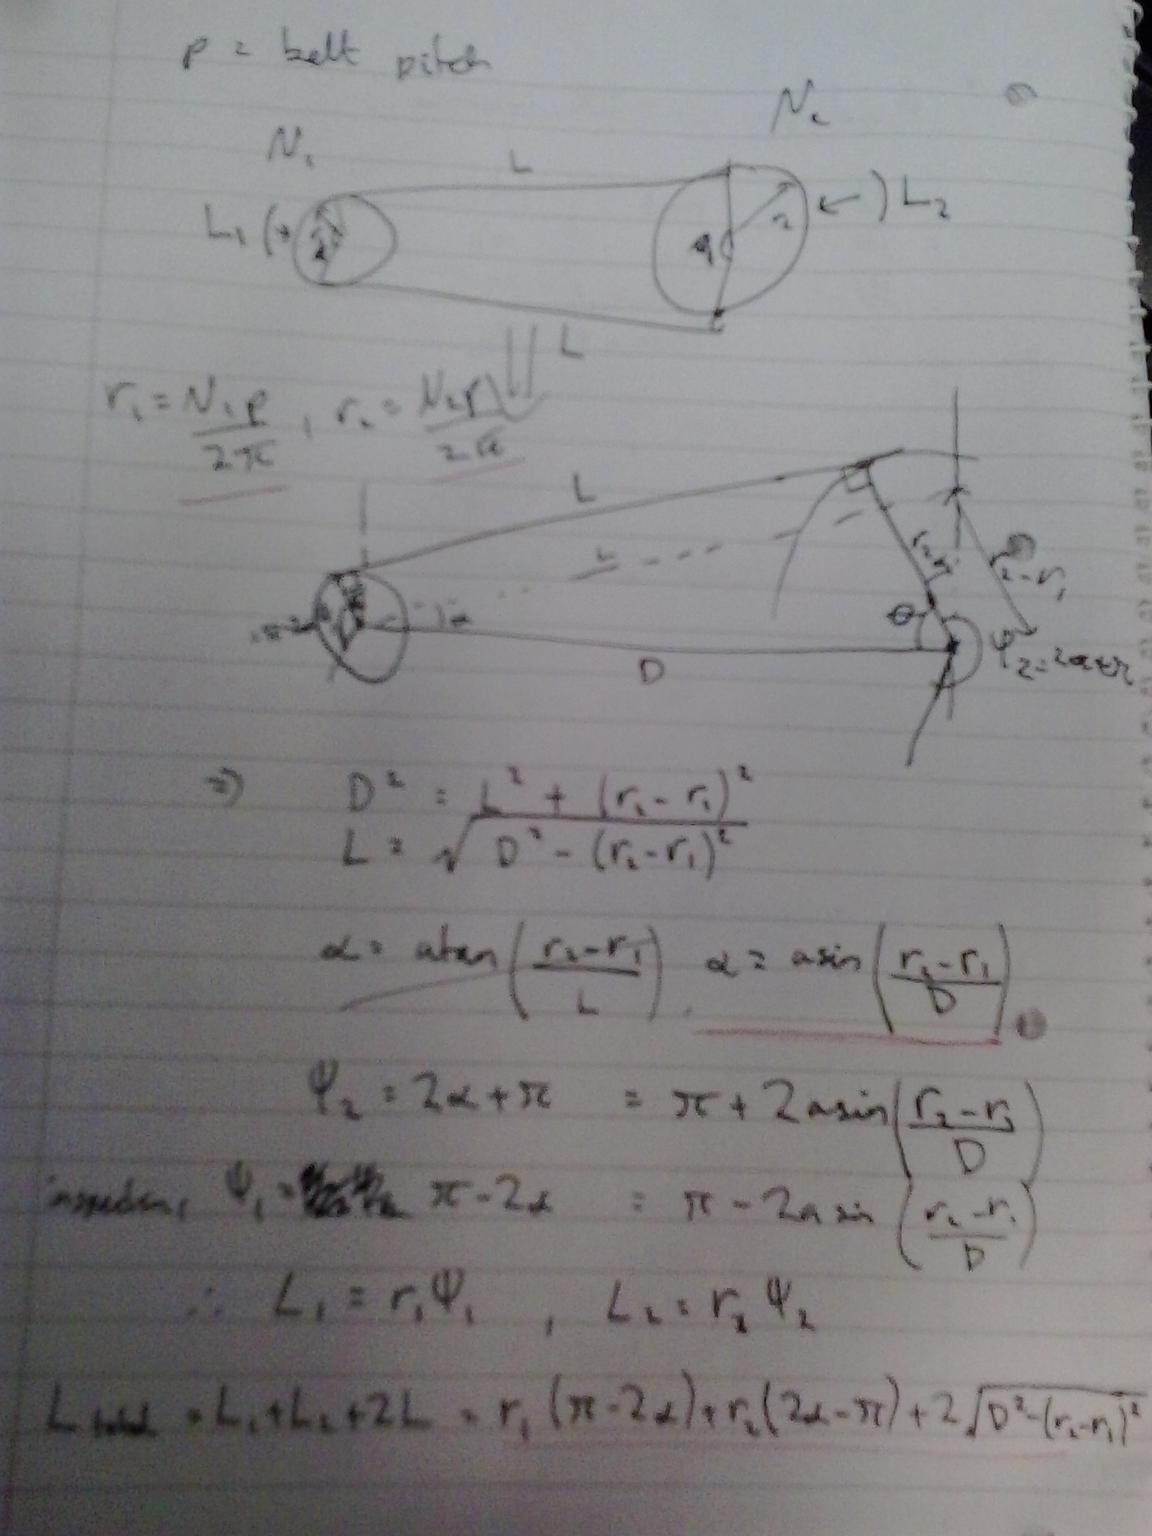 p = belt pitch
N₁ N₂
L
L₁ L₂
r₂
L
r₁ = N₁p/2π , r₂ = N₂p/2π
L
L
r₂-r₁
α θ
D
Ψ₂=2α+π
⇒) D² = L² + (r₂ - r₁)²
L = √(D² - (r₂-r₁)²)
α = atan((r₂-r₁)/L) , α = asin((r₂-r₁)/D)
Ψ₂ = 2α+π = π + 2asin((r₂-r₁)/D)
Ψ₁ = π-2α = π - 2asin((r₂-r₁)/D)
∴ L₁ = r₁Ψ₁ , L₂ = r₂Ψ₂
L total = L₁+L₂+2L = r₁(π-2α)+r₂(2α-π)+2√(D²-(r₂-r₁)²)